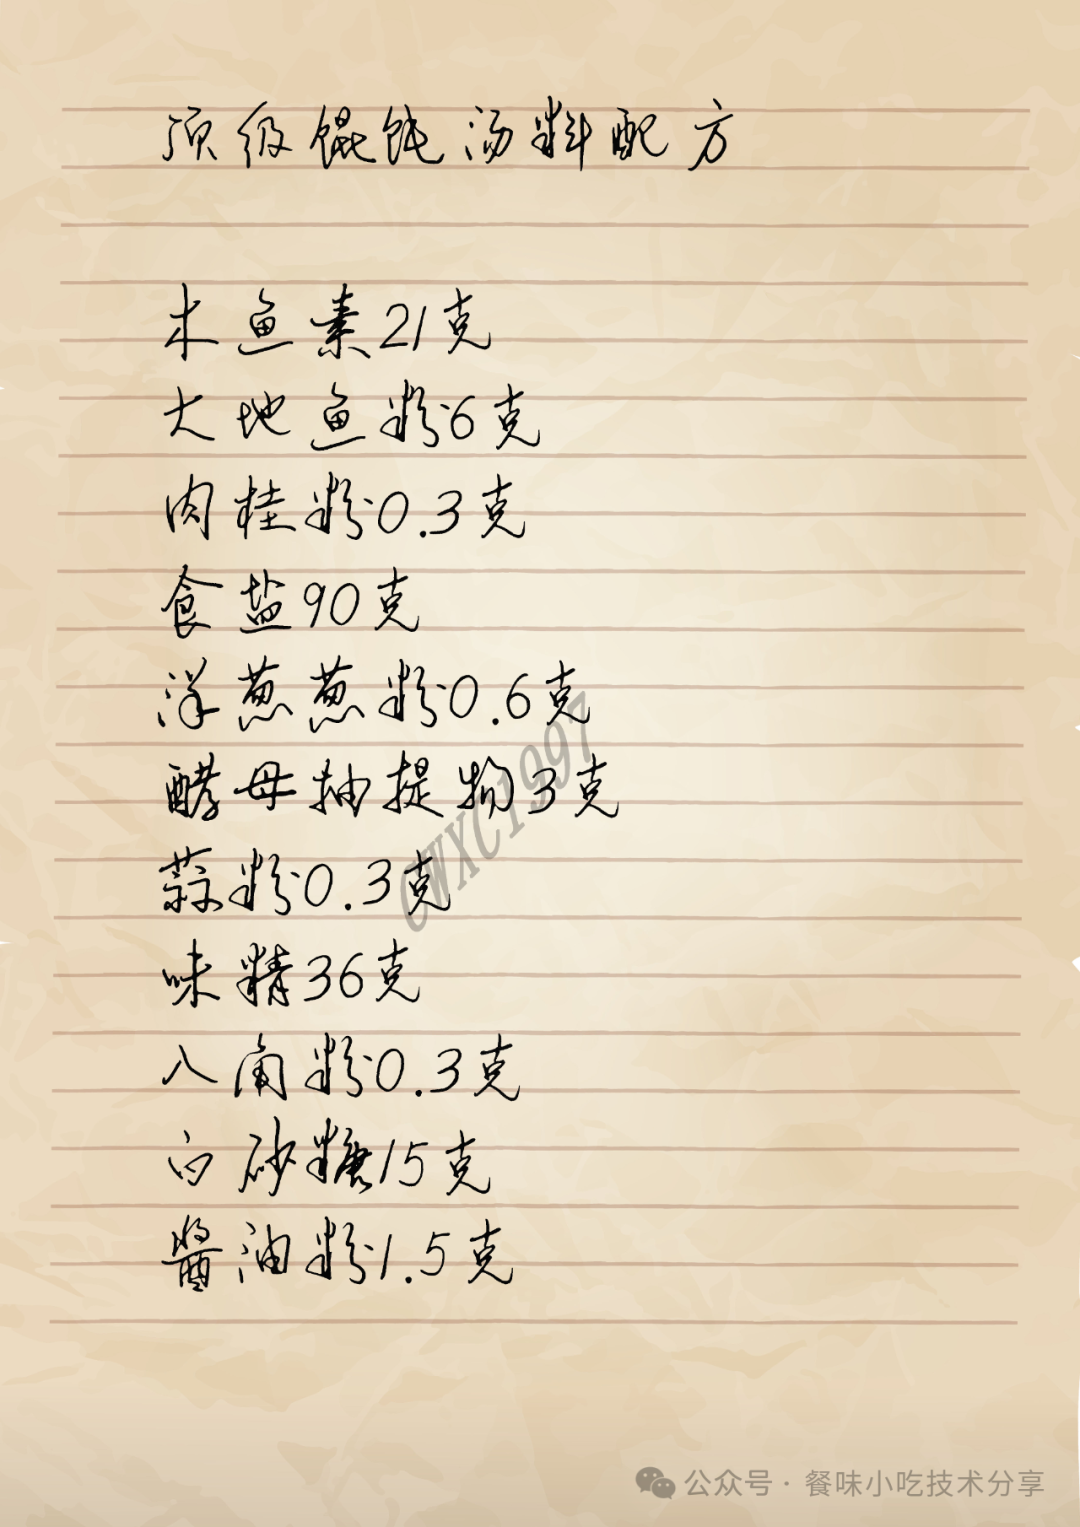 顶级馄饨汤料配方
木鱼素21克
大地鱼粉6克
肉桂粉0.3克
食盐90克
洋葱葱粉0.6克
酵母抽提物3克
蒜粉0.3克
味精36克
八角粉0.3克
白砂糖15克
酱油粉1.5克
CWXC1997
公众号·餐味小吃技术分享